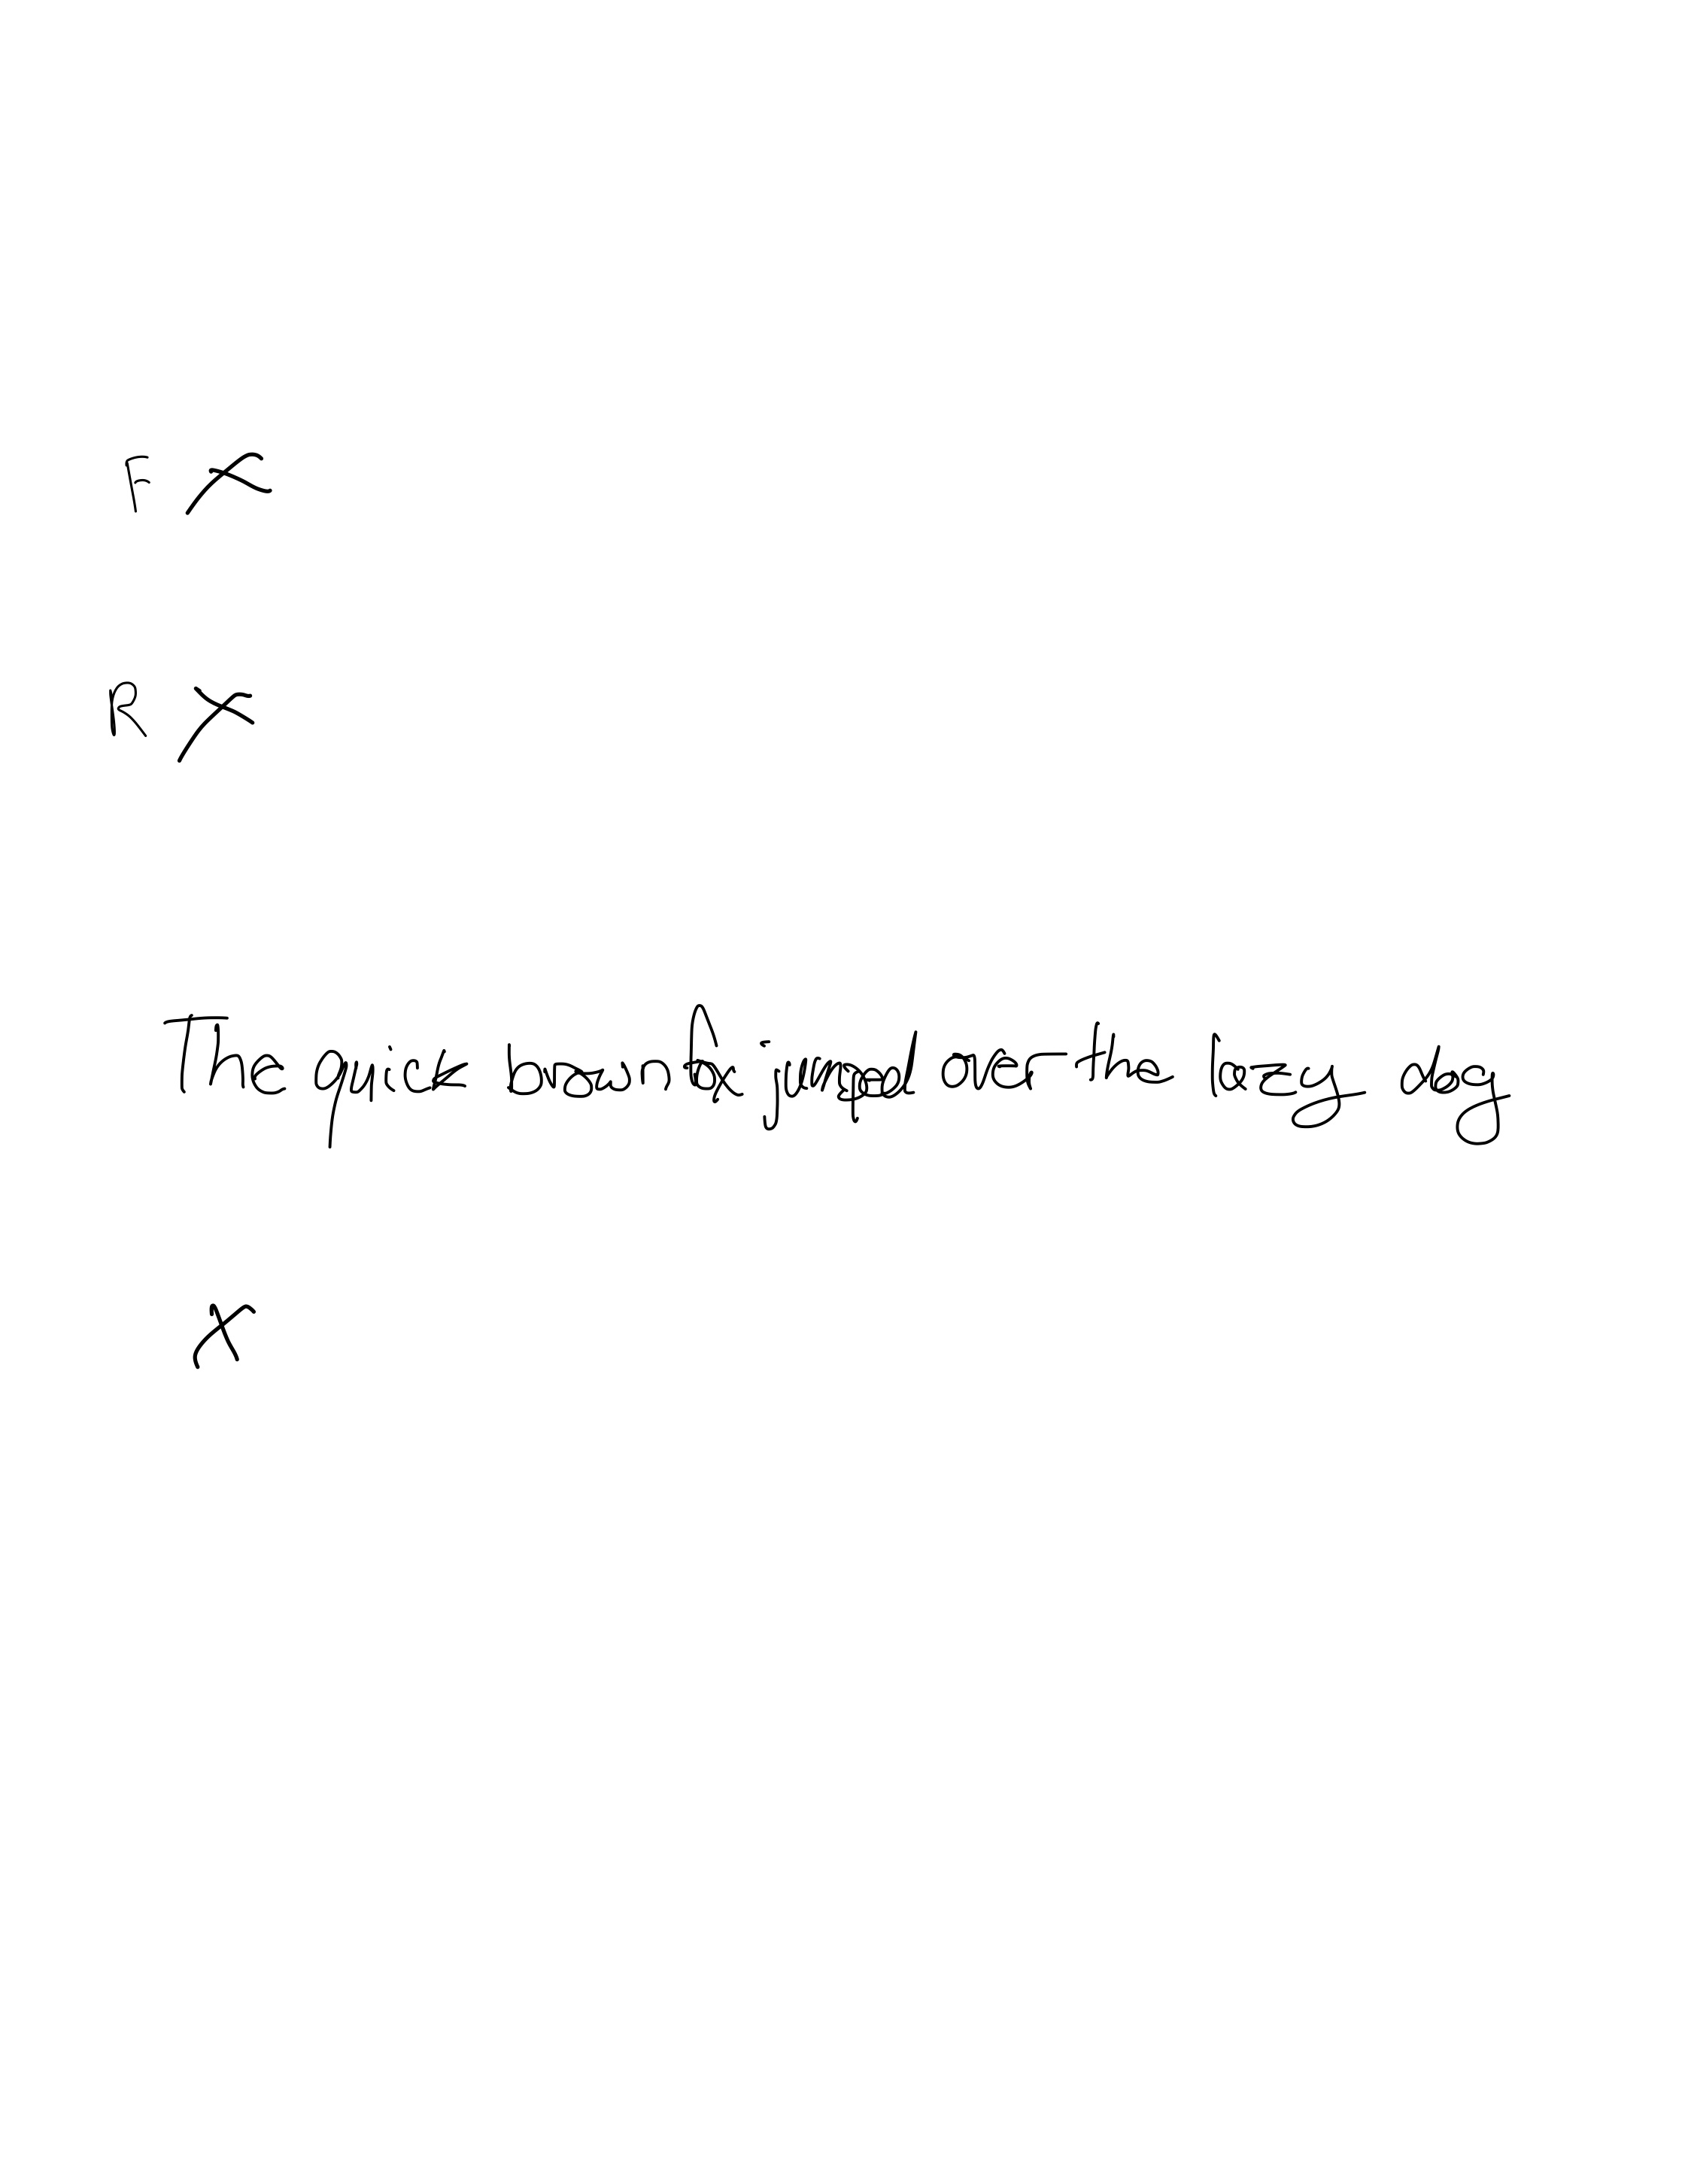 F X
R X
The quick brown fox jumped over the lazy dog
X